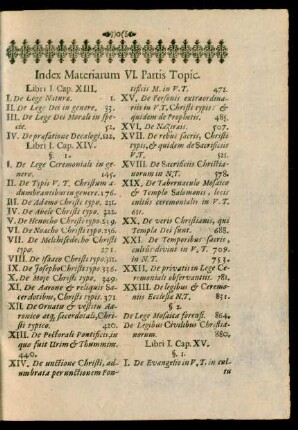 Index Materiarum VI. Partis Topic.
Libri I. Cap. XIII.
I. De Lege Naturæ. 1.
II. De Lege Dei in genere. 33.
III. De Lege Dei Morali in specie. 51.
IV. De præfatione Decalogi. 122.
Libri I. Cap. XIV.
§ 1.
I. De Lege Ceremoniali in genere. 145.
II. De Typis V. T. Christum adumbrantibus in genere. 176.
III. De Adamo Christi typo.
IV. De Abele Christi typo. 222.
V. De Henocho Christi typo. 239.
VI. De Noacho Christi typo. 256.
VII. De Melchisedecho Christi typo. 271.
VIII. De Isaaco Christi typo. 311.
IX. De Josepho Christi typo. 326.
X. De Mose Christi typo. 349.
XI. De Aarone & reliquis Sacerdotibus, Christi typis. 371
XII. De Ornatu & vestitu Aaronico aeq. sacerdotali, Christi typico. 420.
XIII. De Pectorali Pontificis, in quo fuit Urim & Thummim. 440.
XIV. De unctione Christi, adumbrata per unctionem Pon-
tificis M. in V. T. 472.
XV. De Personis extraordinariis in V.T. Christi typis: & quidem de Prophetis. 485.
XVI. De Naziræis. 507.
XVII. De rebus sacris, Christi typis, & quidem de Sacrificiis V.T. 521.
XVIII. De Sacrificiis Christianorum in N.T. 578.
XIX. De Tabernaculo Mosaico & Templo Salomonis, locis cultus ceremonialis in V.T. 631.
XX. De veris Christianis, qui Templa Dei sunt. 688.
XXI. De Temporibus sacris, cultui divini in V.T. 709. in N.T. 753.
XXII. De privatis in Lege Ceremoniali observantiis. 781.
XXIII. De legibus & Ceremoniis Ecclesiæ N.T. 851.
§ 2.
De Lege Mosaica forensi. 864.
De Legibus Civilibus Christianorum. 880.
Libri I. Cap. XV.
§. 1.
I. De Evangelio in V.T. in cul-
tu